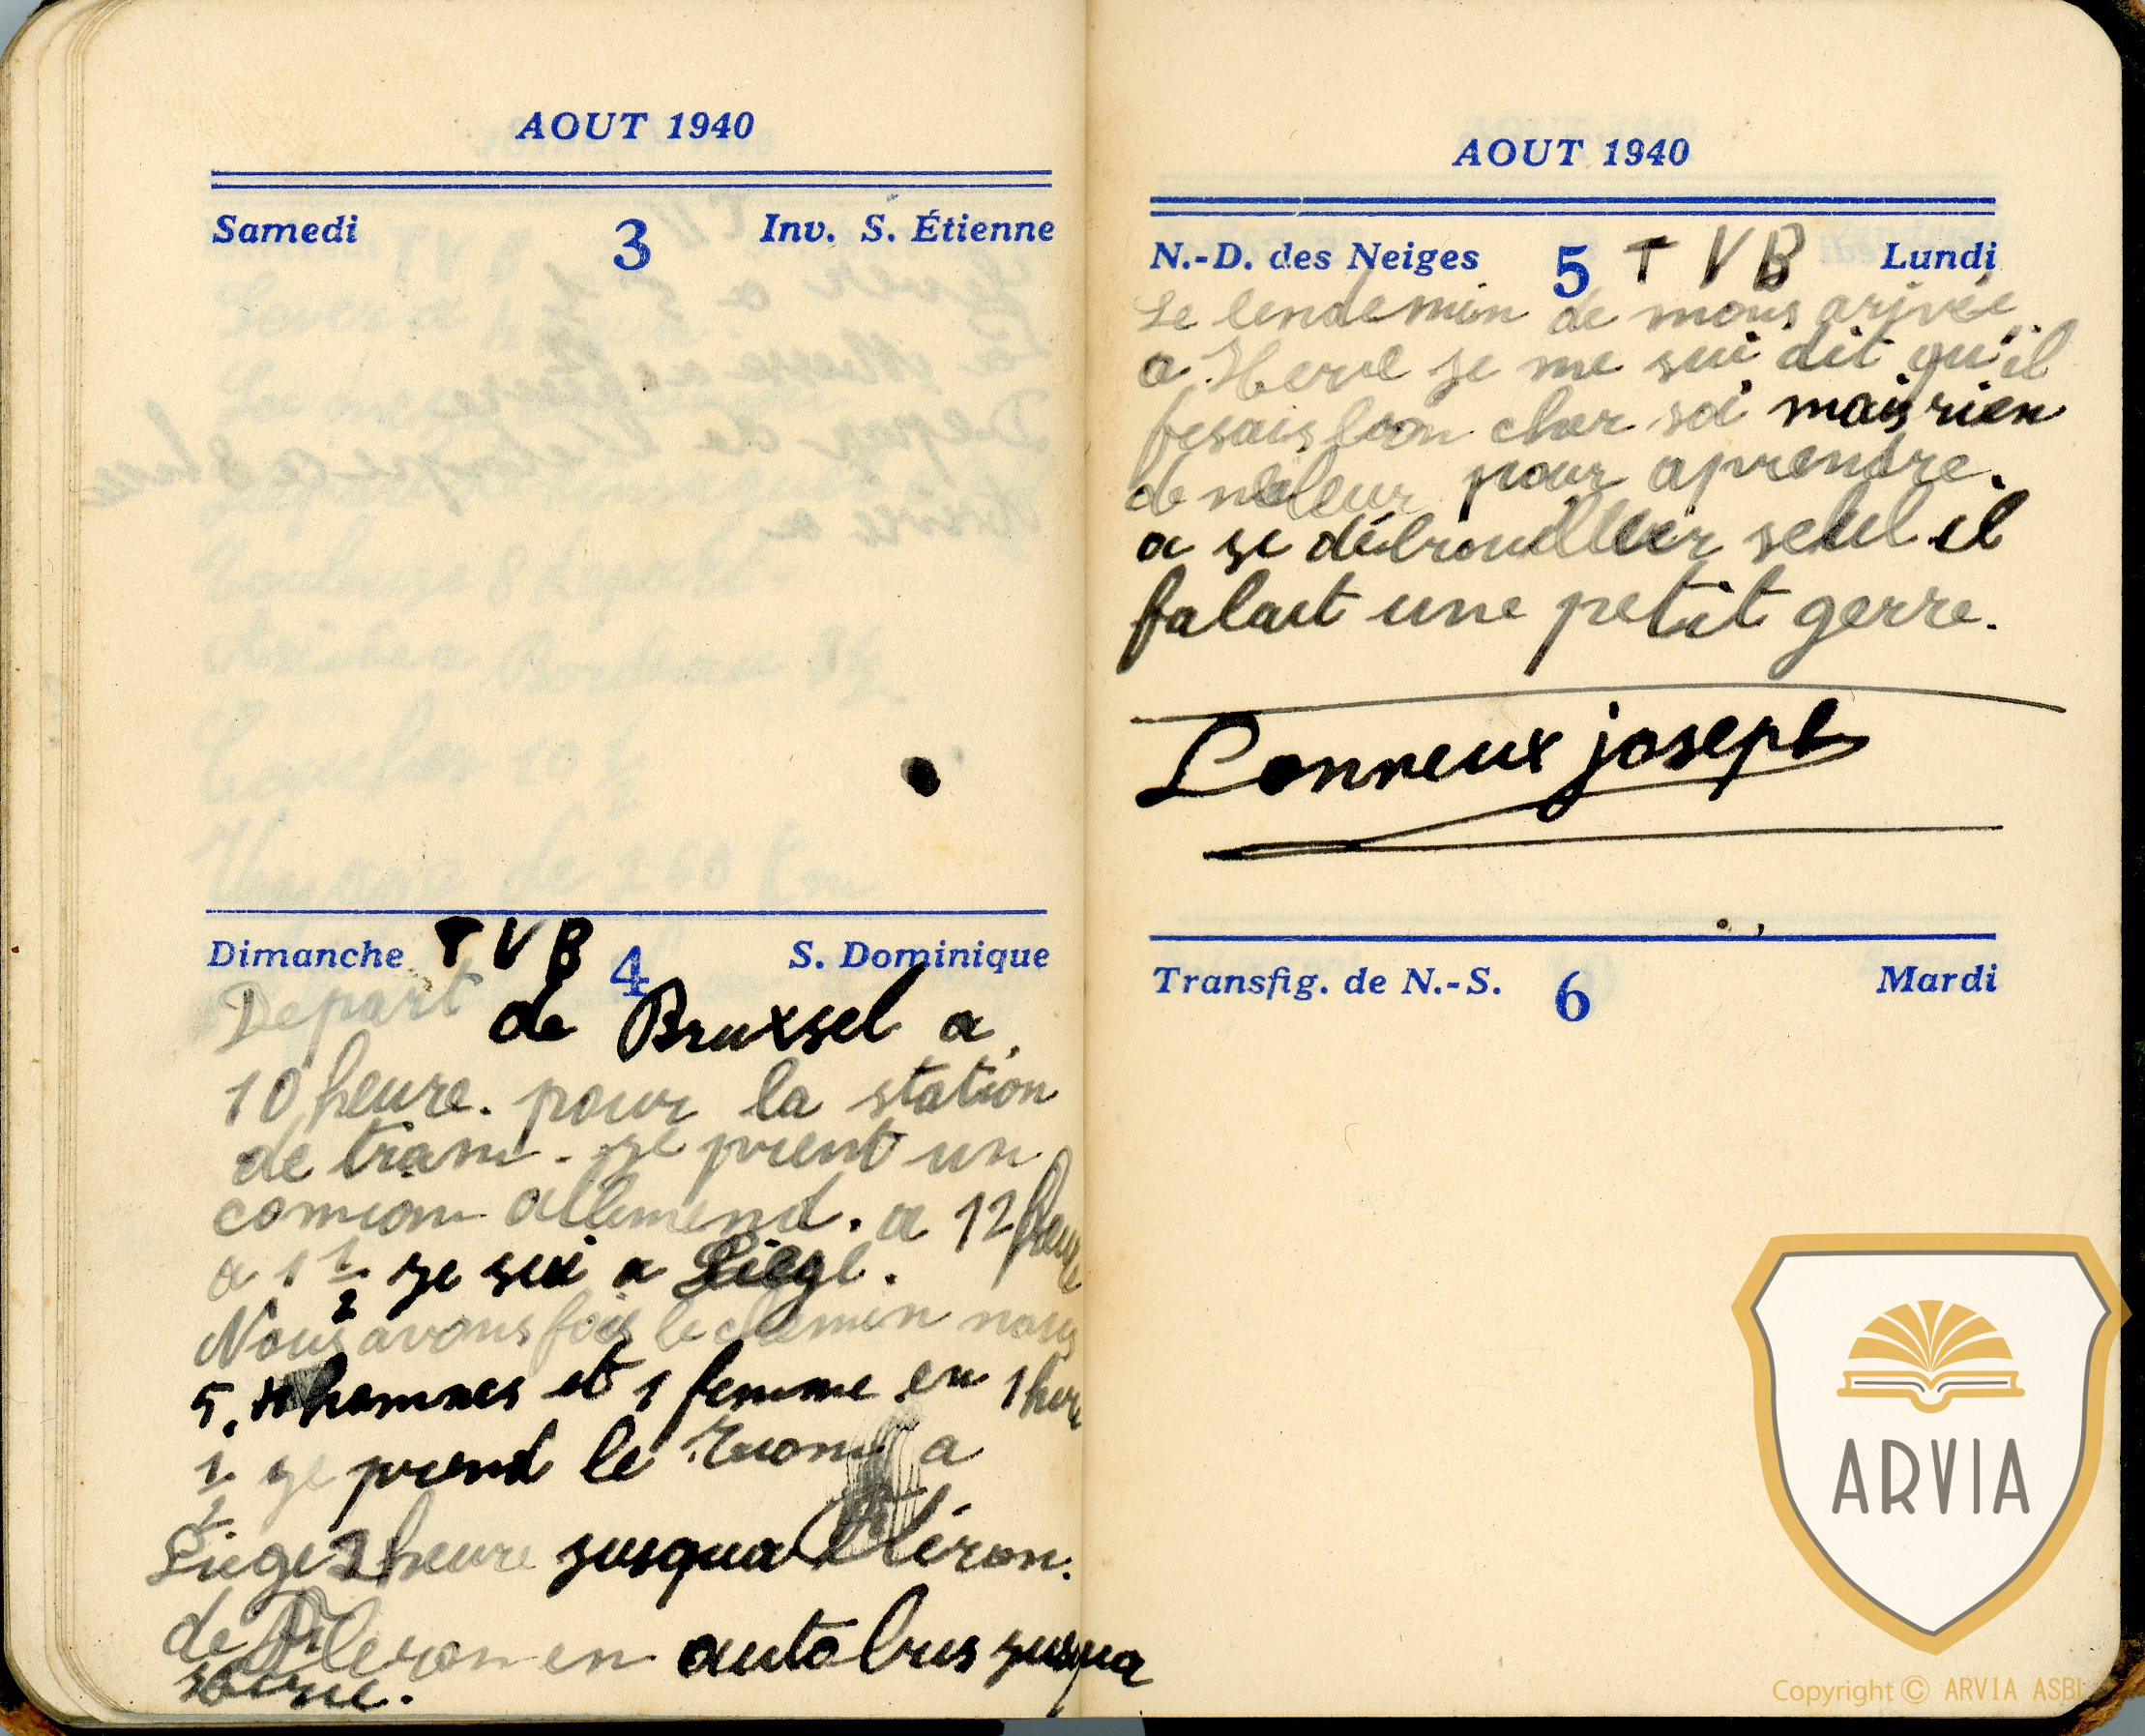 AOUT 1940
Samedi 3 Inv. S. Étienne
Dimanche TVB 4 S. Dominique
Depart de Bruxsel a
10 heure. pour la station
de tram. je prent un
comion allemend. a 12 heure
a 1 1/2 je sui a Liège.
Nous avons fais le chemin nous
5. 4 hommes et 1 femme en 1 heure
1/2 je prend le a
Liege 2 heure jusqua Fléron.
de Fleron en autobus jusqua

AOUT 1940
N.-D. des Neiges 5 TVB Lundi
Le lendemin de mons arivée
a Herve je me sui dit qu'il
fesais bon cher soi mais rien
de meleur pour aprendre.
a se débrouiller seul il
falait une petit gerre.
Lonneux joseph
Transfig. de N.-S. 6 Mardi
ARVIA
Copyright © ARVIA ASBL